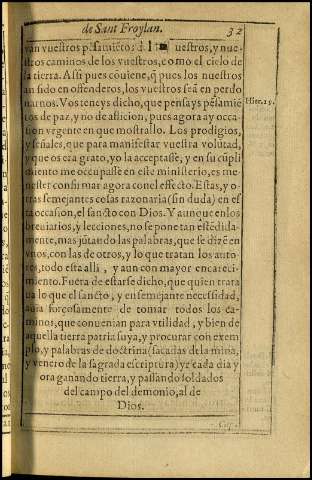 de Sant Froylan. 32
van vuestros pẽsamiẽtos dl uestros, y nue-
stros caminos de los vuestros, como el cielo de
la tierra. Assi pues cõuiene, q̃ pues los nuestros
an sido en offenderos, los vuestros seã en perdo
narnos. Vos teneys dicho, que pensays pẽsamiẽ
tos de paz, y no de aflicion, pues agora ay occa
sion vrgente en que mostrallo. Los prodigios,
y señales, que para manifestar vuestra volũtad,
y que os era grato, yo la acceptasse, y en su cũpli
miento me occupasse en este ministerio, es me-
nester confirmar agora con el effecto. Estas, y o-
tras semejantes cosas razonaria (sin duda) en es
ta occasion, el sancto con Dios. Y aunque en los
breuiarios, y lecciones, no se pone tan estẽdida-
mente, mas jũtando las palabras, que se dizẽ en
vnos, con las de otros, y lo que tratan los auto-
res, todo esta alli, y aun con mayor encareci-
miento. Fuera de estarse dicho, que quien trata
ua lo que el sancto, y en semejante necessidad,
auia forçosamente de tomar todos los ca-
minos, que conuenian para vtilidad, y bien de
aquella tierra patria suya, y procurar con exem
plo, y palabras de doctrina (sacadas de la mina,
y venero de la sagrada escriptura) yr cada dia y
ora ganando tierra, y passando soldados
del campo del demonio, al de
Dios.
Hier. 29.
Cap.